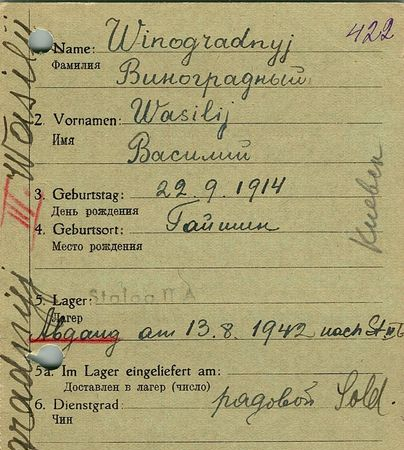 422
Name: Winogradnyj
Фамилия Виноградный
2. Vornamen: Wasilij
Имя
Василий
3. Geburtstag: 22.9.1914
День рождения
4. Geburtsort: Гайшин
Место рождения
Киевск
5. Lager: Stalag II A
Лагер
Abgang am 13.8.1942 nach St.
5a. Im Lager eingeliefert am:
Доставлен в лагер (число)
6. Dienstgrad: рядовой Sold.
Чин
gradnyj III Wasilij